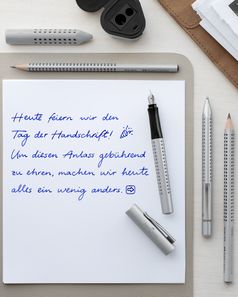 Heute feiern wir den
Tag der Handschrift!
Um diesen Anlass gebührend
zu ehren, machen wir heute
alles ein wenig anders.